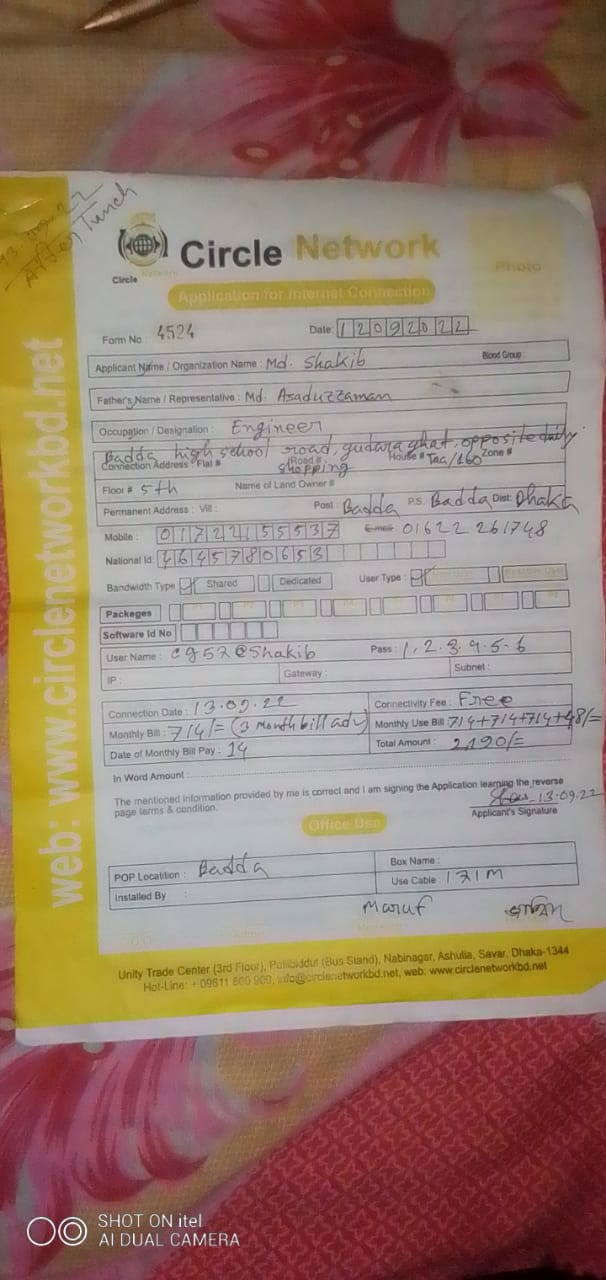 13.09.22
After Lunch
Circle Network
Circle Network
Photo
Application for Internet Connection
Form No : 4524 Date: 12092022
Applicant Name / Organization Name : Md. Shakib Blood Group :
Father's Name / Representative : Md. Asaduzzaman
Occupation / Designation : Engineer
Badda high school road, gudara ghat, opposite daily
Connection Address : Flat # Road # shopping House # Taa/160 Zone #
Floor # 5th Name of Land Owner #
Permanent Address : Vill : Post : Badda P.S. Badda Dist: Dhaka
Mobile : 01722155537 01622 261748
National Id: 4645780653
Bandwidth Type Shared Dedicated User Type :
Packeges
Software Id No
User Name : c957@Shakib Pass : 1.2.3.4.5.6
IP : Gateway : Subnet :
Connection Date : 13.09.22 Connectivity Fee : Free
Monthly Bill : 714/= (3 Month bill adv) Monthly Use Bill 714+714+714+48/=
Date of Monthly Bill Pay : 14 Total Amount : 2190/=
In Word Amount :
The mentioned information provided by me is correct and I am signing the Application learning the reverse
page terms & condition.
13.09.22
Applicant's Signature
Office Use
POP Locatition : Badda Box Name :
Installed By : Use Cable : 171M
Maruf
Unity Trade Center (3rd Floor), Pollibiddut (Bus Stand), Nabinagar, Ashulia, Savar, Dhaka-1344
Hot-Line: + 09611 800 900, info@circlenetworkbd.net, web: www.circlenetworkbd.net
web: www.circlenetworkbd.net
SHOT ON itel
AI DUAL CAMERA